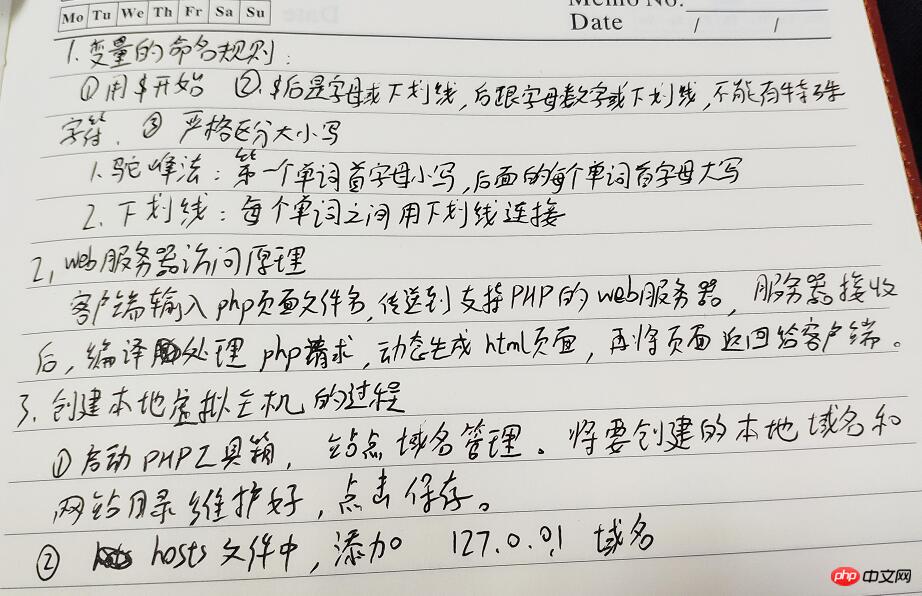 Mo Tu We Th Fr Sa Su
Memo No.
Date / /
1.变量的命名规则:
①用$开始 ②.$后是字母或下划线,后跟字母数字或下划线,不能有特殊
字符. ③ 严格区分大小写
1.驼峰法:第一个单词首字母小写,后面的每个单词首字母大写
2.下划线:每个单词之间用下划线连接
2,web服务器访问原理
客户端输入php页面文件名,传送到支持PHP的web服务器,服务器接收
后,编译处理php请求,动态生成html页面,再将页面返回给客户端。
3.创建本地虚拟主机的过程
①启动PHP工具箱,站点域名管理。将要创建的本地域名和
网站目录维护好,点击保存。
② hosts文件中,添加 127.0.0.1 域名
php 中文网